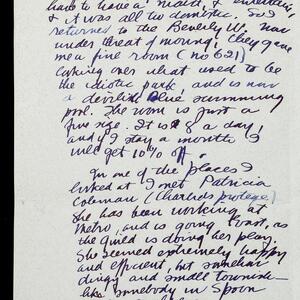 have to have a maid, & entertain,
& it was all too domestic. So I
returned to the Beverly W. now
under threat of moving, they gave
me a fine room (no 621)
looking over what used to be
the idiotic park, and is now
a devilish blue swimming
pool. The room is just a
fine size. It is 8 a day,
and if I stay a month I
will get 10% off.
In one of the places I
looked at I met Patricia
Coleman (Charlie's protegé)
She has been working at
Metro, and is going East, as
the Guild is doing her play.
She seemed extremely happy
and efficient, but somehow
dingy and small townish—
like somebody in Spoon